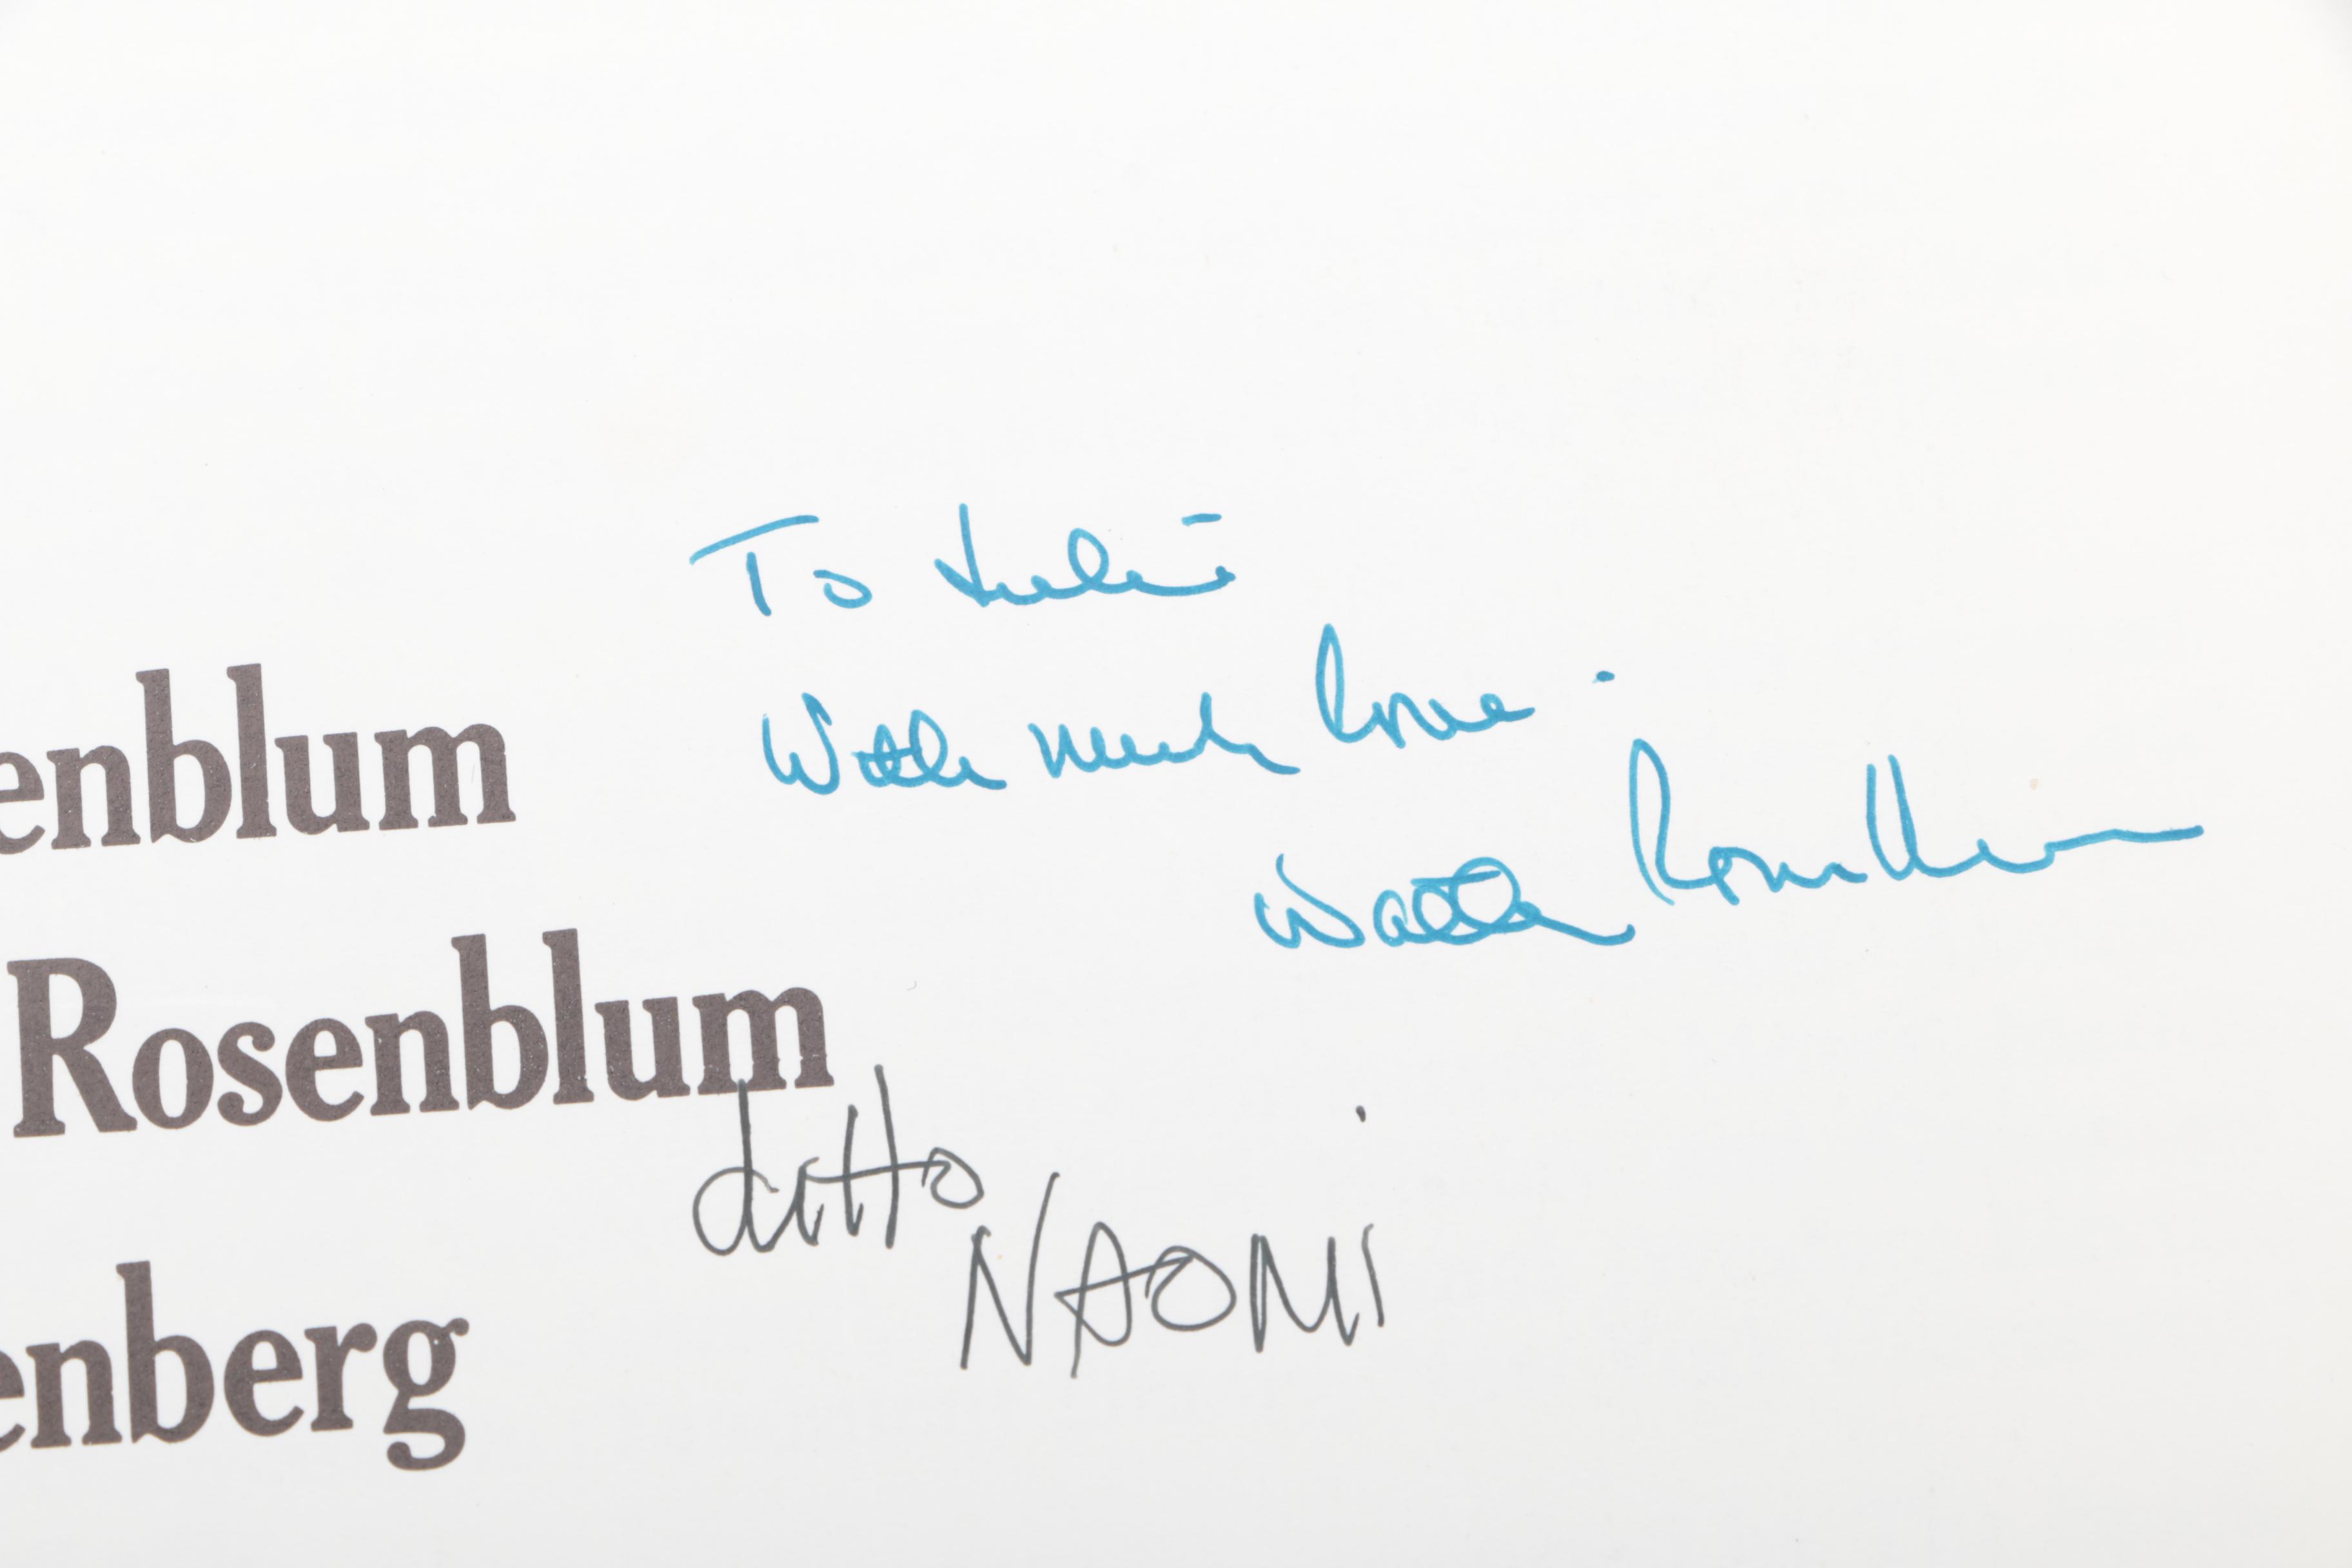 To Julie
With much love.
Walter Rosenblum
enblum
Rosenblum
ditto
NAOMI
enberg